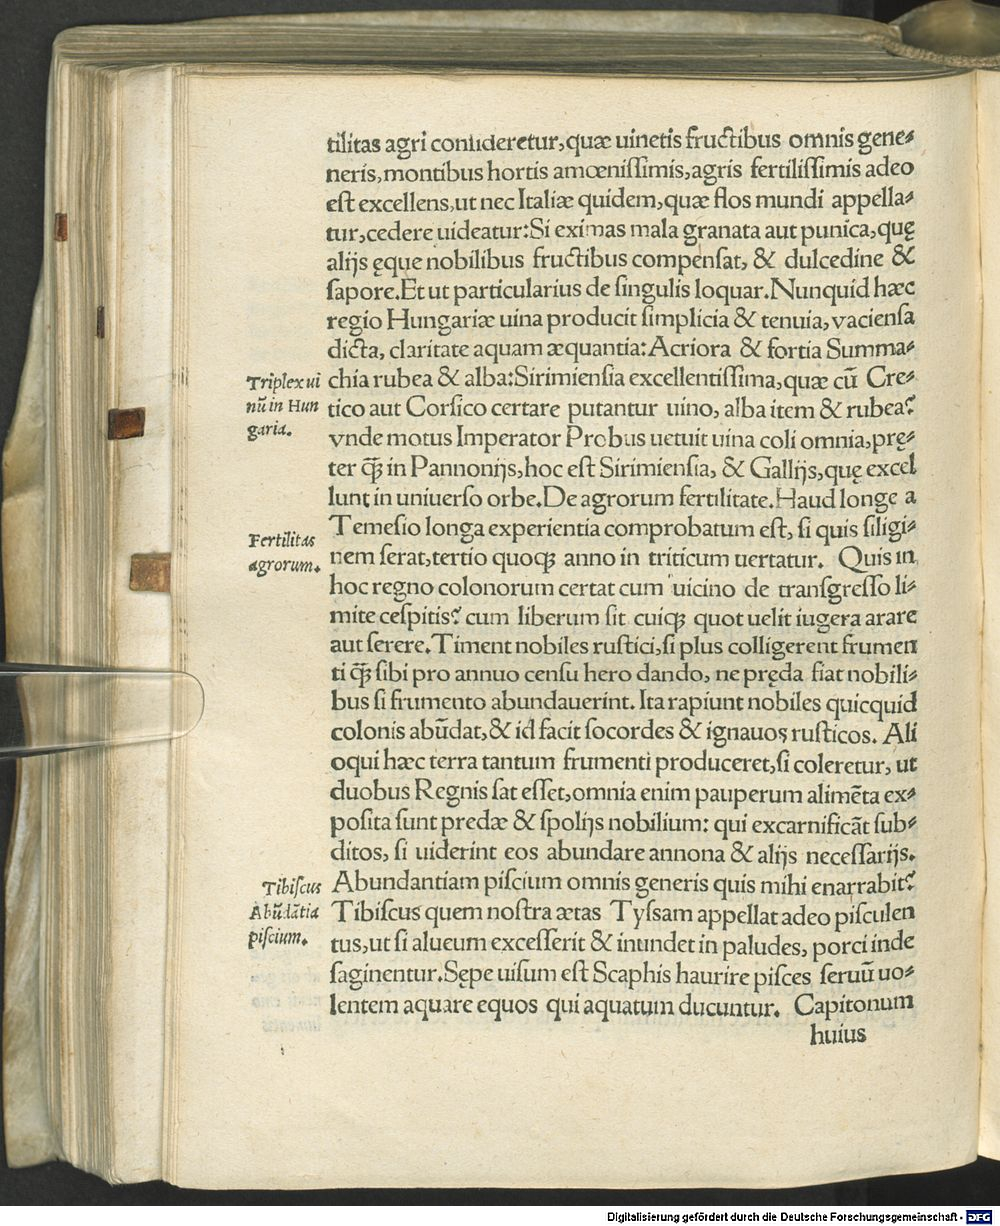 tilitas agri consideretur, quæ uinetis fructibus omnis gene⸗
neris, montibus hortis amœnissimis, agris fertilissimis adeo
est excellens, ut nec Italiæ quidem, quæ flos mundi appella⸗
tur, cedere uideatur: Si eximas mala granata aut punica, quę
alijs ęque nobilibus fructibus compensat, & dulcedine &
sapore. Et ut particularius de singulis loquar. Nunquid hæc
regio Hungariæ uina producit simplicia & tenuia, vaciensa
dicta, claritate aquam æquantia: Acriora & fortia Summa⸗
Triplex ui
nū in Hun
garia.
chia rubea & alba: Sirimiensia excellentissima, quæ cū Cre⸗
tico aut Corsico certare putantur uino, alba item & rubea?
vnde motus Imperator Probus uetuit uina coli omnia, prę⸗
ter q̄ꝫ in Pannonijs, hoc est Sirimiensia, & Gallijs, quę excel
lunt in uniuerso orbe. De agrorum fertilitate. Haud longe a
Fertilitas
agrorum.
Temesio longa experientia comprobatum est, si quis siligi⸗
nem serat, tertio quoqꝫ anno in triticum uertatur. Quis in
hoc regno colonorum certat cum uicino de transgresso li⸗
mite cespitis? cum liberum sit cuiqꝫ quot uelit iugera arare
aut serere. Timent nobiles rustici, si plus colligerent frumen
ti q̄ꝫ sibi pro annuo censu hero dando, ne pręda fiat nobili⸗
bus si frumento abundauerint. Ita rapiunt nobiles quicquid
colonis abūdat, & id facit socordes & ignauos rusticos. Ali
oqui hæc terra tantum frumenti produceret, si coleretur, ut
duobus Regnis sat esset, omnia enim pauperum alimēta ex⸗
posita sunt predæ & spolijs nobilium: qui excarnificāt sub⸗
ditos, si uiderint eos abundare annona & alijs necessarijs.
Tibiscus
Abūdātia
piscium.
Abundantiam piscium omnis generis quis mihi enarrabit?
Tibiscus quem nostra ætas Tyssam appellat adeo pisculen
tus, ut si alueum excesserit & inundet in paludes, porci inde
saginentur. Sępe uisum est Scaphis haurire pisces seruū uo⸗
lentem aquare equos qui aquatum ducuntur. Capitonum
huius
Digitalisierung gefördert durch die Deutsche Forschungsgemeinschaft - DFG